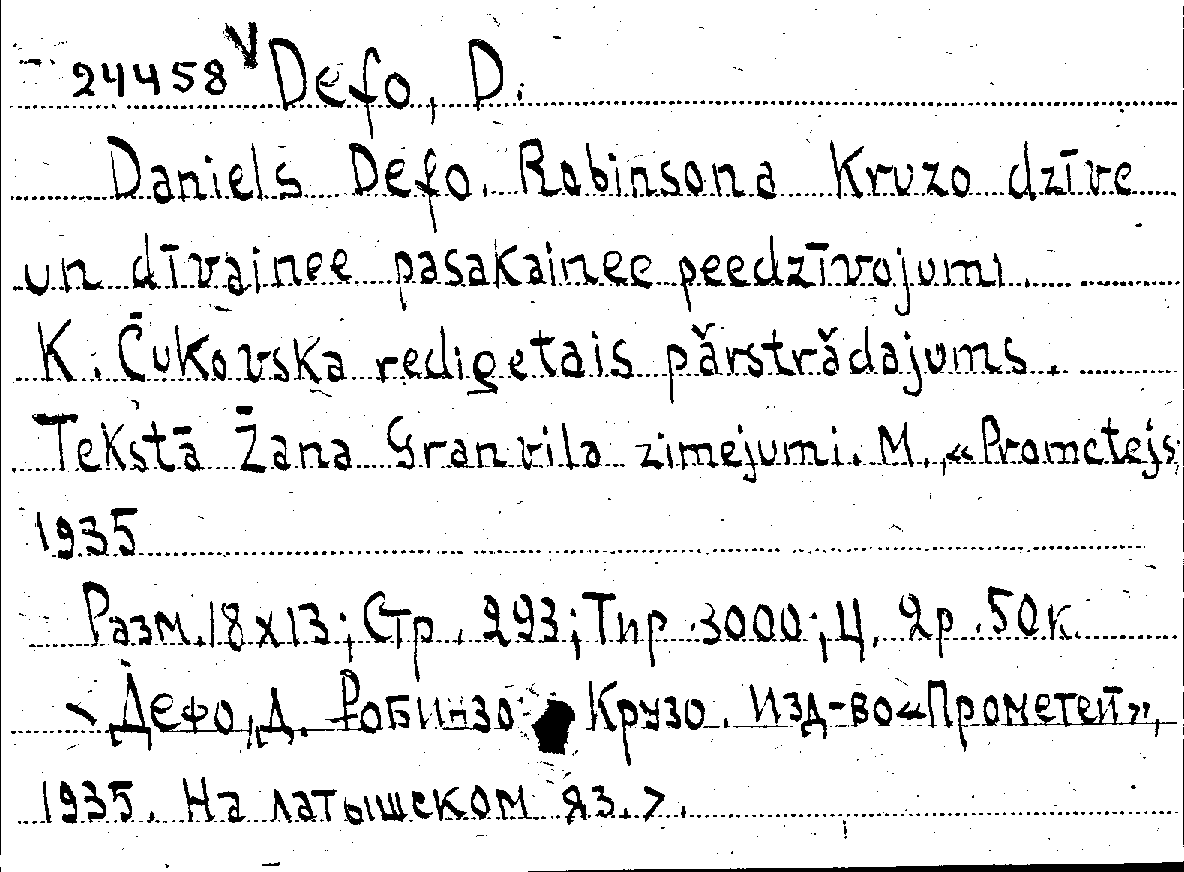 24458 V Defo, D.
Daniels Defo. Robinsona Kruzo dzīve
un dīvainee pasakainee peedzīvojumi.
K. Čukovska redigetais pǎrstrǎdajums.
Tekstā Žana Granvila zimejumi. M. «Prometejs
1935
Разм. 18x13; Стр. 293; Тир. 3000; Ц. 2р. 50к.
<Дефо, Д. Робинзо Крузо. Изд-во «Прометей»,
1935. На латышском яз.>.